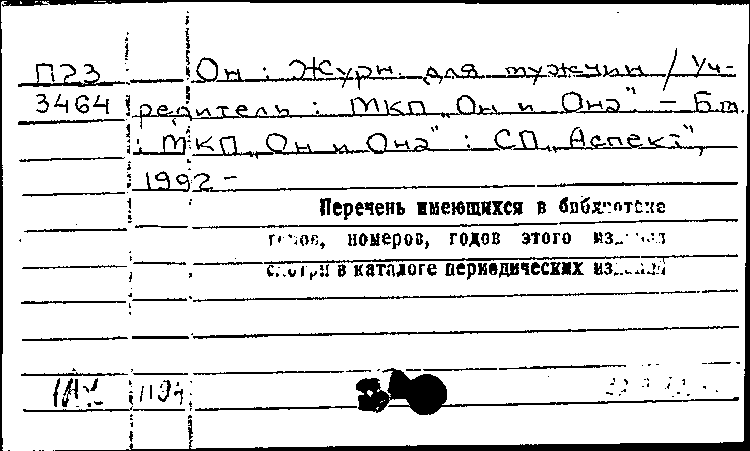 П23 Он : Журн. для мужчин / Уч-
3464 редитель : МКП „Он и Она" – Б.м.
: МКП „Он и Она" : СП „Аспект",
1992 –
Перечень имеющихся в библиотеке
томов, номеров, годов этого издания
смотри в каталоге периодических изданий